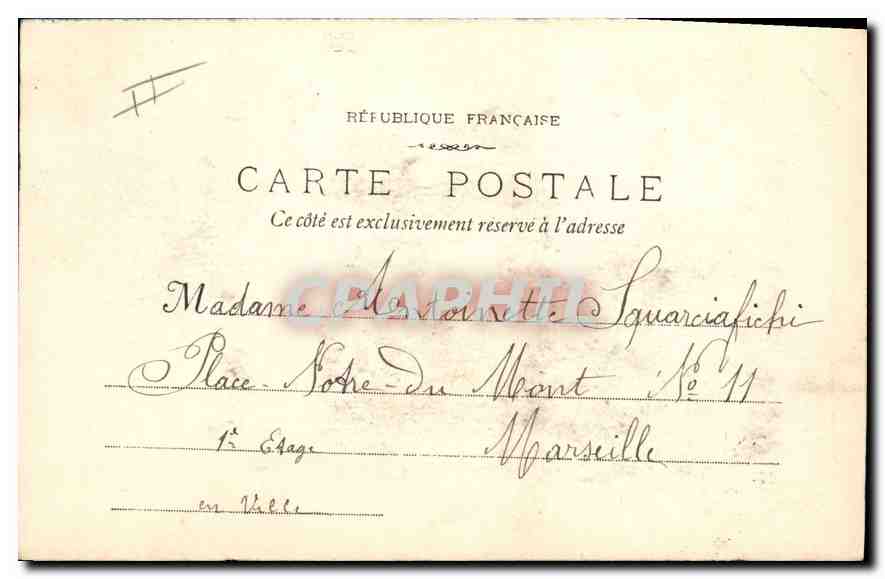 RÉPUBLIQUE FRANÇAISE
CARTE POSTALE
Ce côté est exclusivement réservé à l'adresse
CPAPHIL
Madame Antoinette Squarciafichi
Place Notre-Du Mont No 11
1e Etage Marseille
en Ville